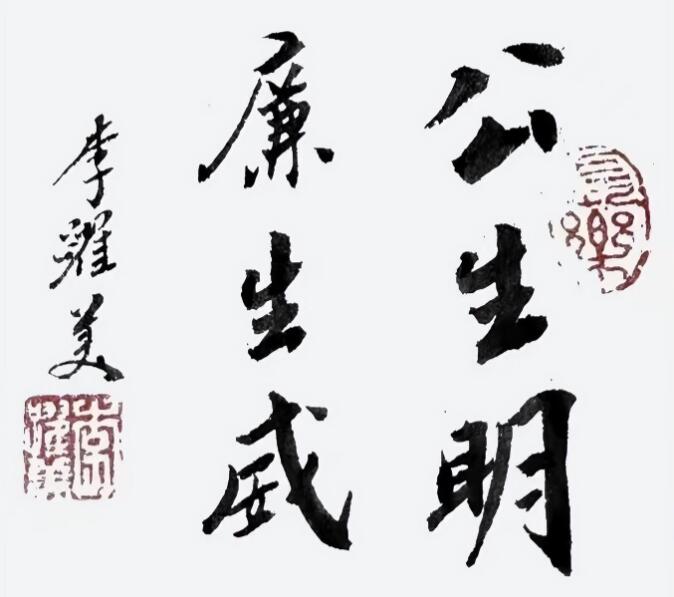 公生明
廉生威
李耀美